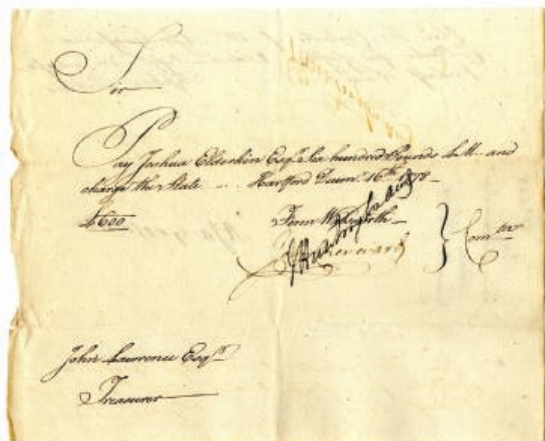 Sir
Pay Joshua Elderkin Esqr. Six hundred Pounds L.M. and
charge the State Hartford 16th 1778
£600
Fenn Wadsworth
Comtee
John Lawrence Esqr.
Treasurer